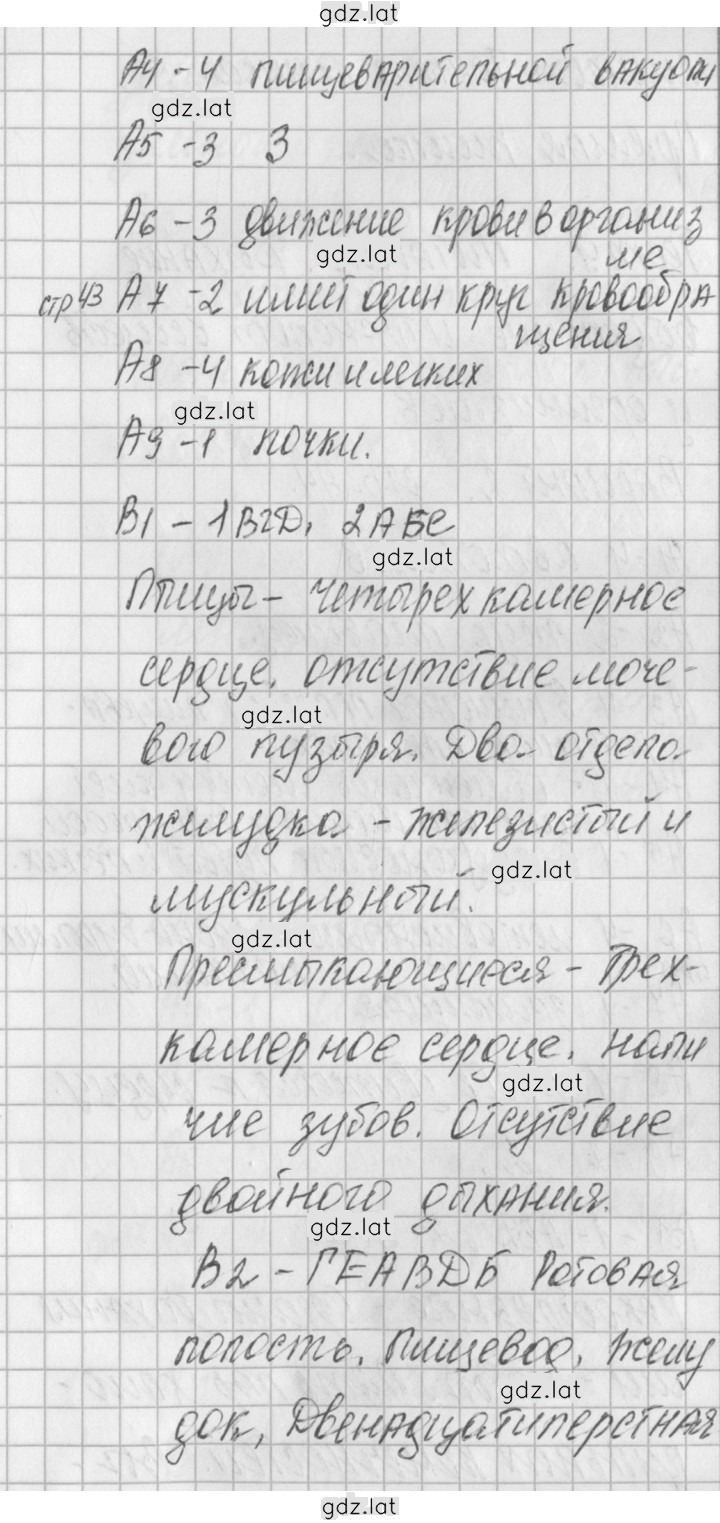 gdz.lat
А4 - 4 пищеварительной вакуоли
gdz.lat
А5 - 3 3
А6 - 3 движение крови в организ
gdz.lat
ме
стр 43 А7 - 2 имеют один круг кровообра
щения
А8 - 4 кожи и легких
gdz.lat
А9 - 1 почки.
В1 - 1ВГД, 2АБЕ
gdz.lat
Птицы - четырех камерное
сердце. отсутствие моче-
gdz.lat
вого пузыря. Два отдела
желудка - железистый и
gdz.lat
мускульный.
gdz.lat
Пресмыкающиеся - Трех-
камерное сердце. нали
gdz.lat
чие зубов. Отсутствие
двойного дыхания.
gdz.lat
В2 - ГЕАВДБ Ротовая
полость. Пищевод, желу
gdz.lat
док, Двенадцатиперстная
gdz.lat